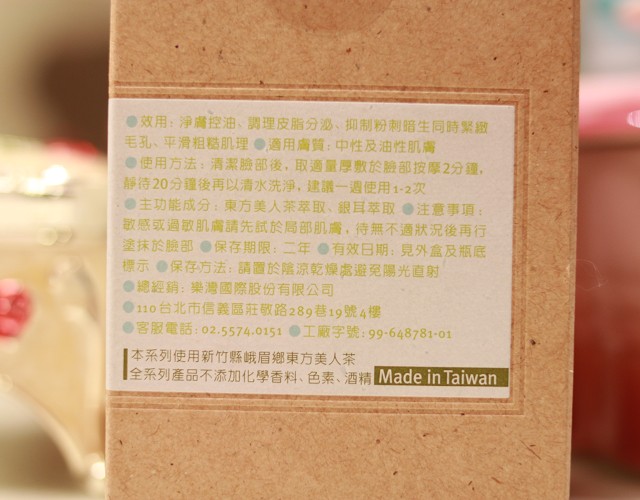 ●效用: 淨膚控油、調理皮脂分泌、抑制粉刺暗生同時緊緻
毛孔、平滑粗糙肌理 ●適用膚質: 中性及油性肌膚
●使用方法: 清潔臉部後, 取適量厚敷於臉部按摩2分鐘,
靜待20分鐘後再以清水洗淨, 建議一週使用1-2次
●主功能成分: 東方美人茶萃取、銀耳萃取 ●注意事項:
敏感或過敏肌膚請先試於局部肌膚, 待無不適狀況後再行
塗抹於臉部 ●保存期限: 二年 ●有效日期: 見外盒及瓶底
標示 ●保存方法: 請置於陰涼乾燥處避免陽光直射
●總經銷: 樂灣國際股份有限公司
●110台北市信義區莊敬路289巷19號4樓
●客服電話: 02.5574.0151 ●工廠字號: 99-648781-01
本系列使用新竹縣峨眉鄉東方美人茶
全系列產品不添加化學香料、色素、酒精 Made in Taiwan